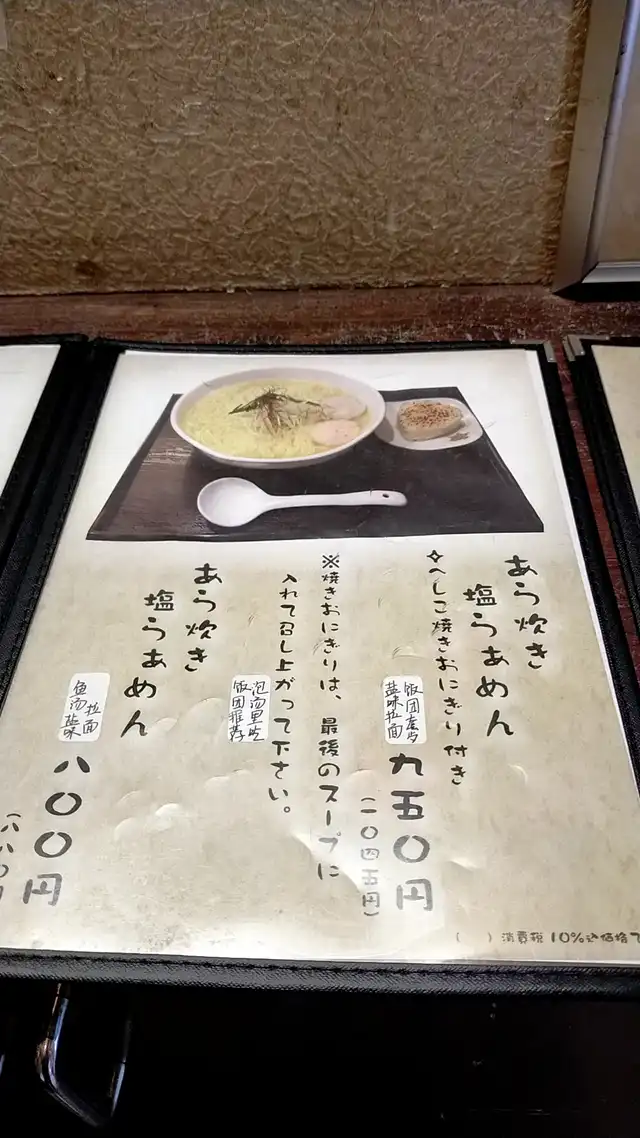 あら炊き
塩らぁめん
✧へしこ焼きおにぎり付き
饭团套餐
盐味拉面
九五〇円
(一〇四五円)
※焼きおにぎりは、最後のスープに
入れて召し上がって下さい。
泡汤里吃
饭团推荐
あら炊き
塩らぁめん
拉面
鱼汤盐味
八〇〇円
(八八〇円
( )消費税10%込価格で